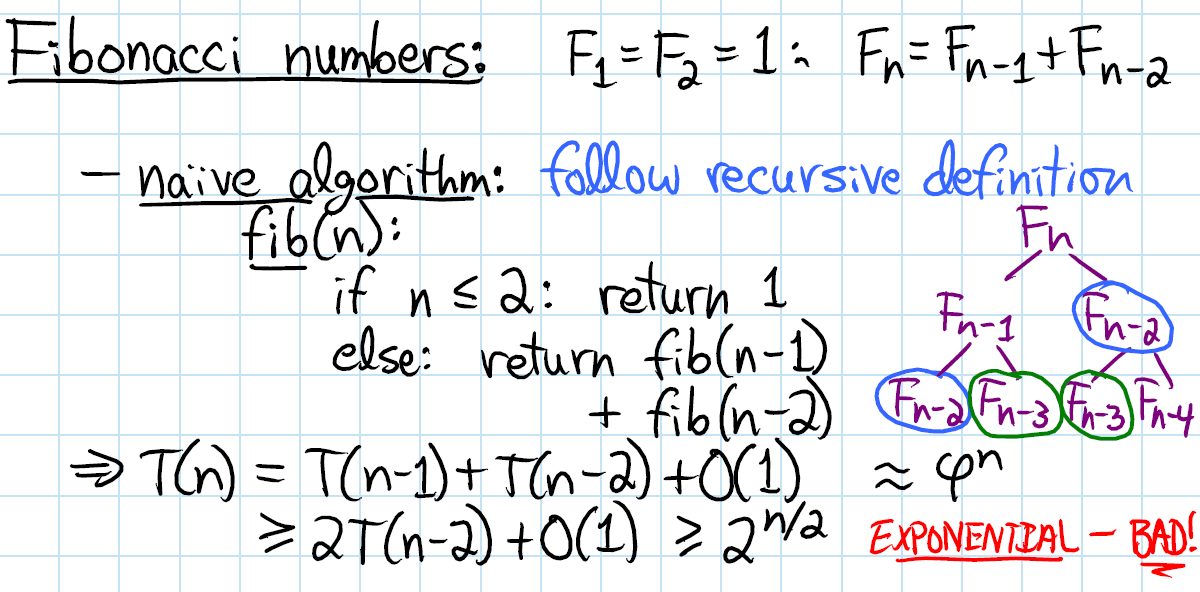 Fibonacci numbers: F₁ = F₂ = 1; Fₙ = Fₙ₋₁ + Fₙ₋₂
- naïve algorithm: follow recursive definition
fib(n):
if n ≤ 2: return 1
else: return fib(n-1)
+ fib(n-2)
Fₙ
Fₙ₋₁ Fₙ₋₂
Fₙ₋₂ Fₙ₋₃ Fₙ₋₃ Fₙ₋₄
⇒ T(n) = T(n-1) + T(n-2) + O(1) ≈ φⁿ
≥ 2T(n-2) + O(1) ≥ 2^(n/2) EXPONENTIAL - BAD!